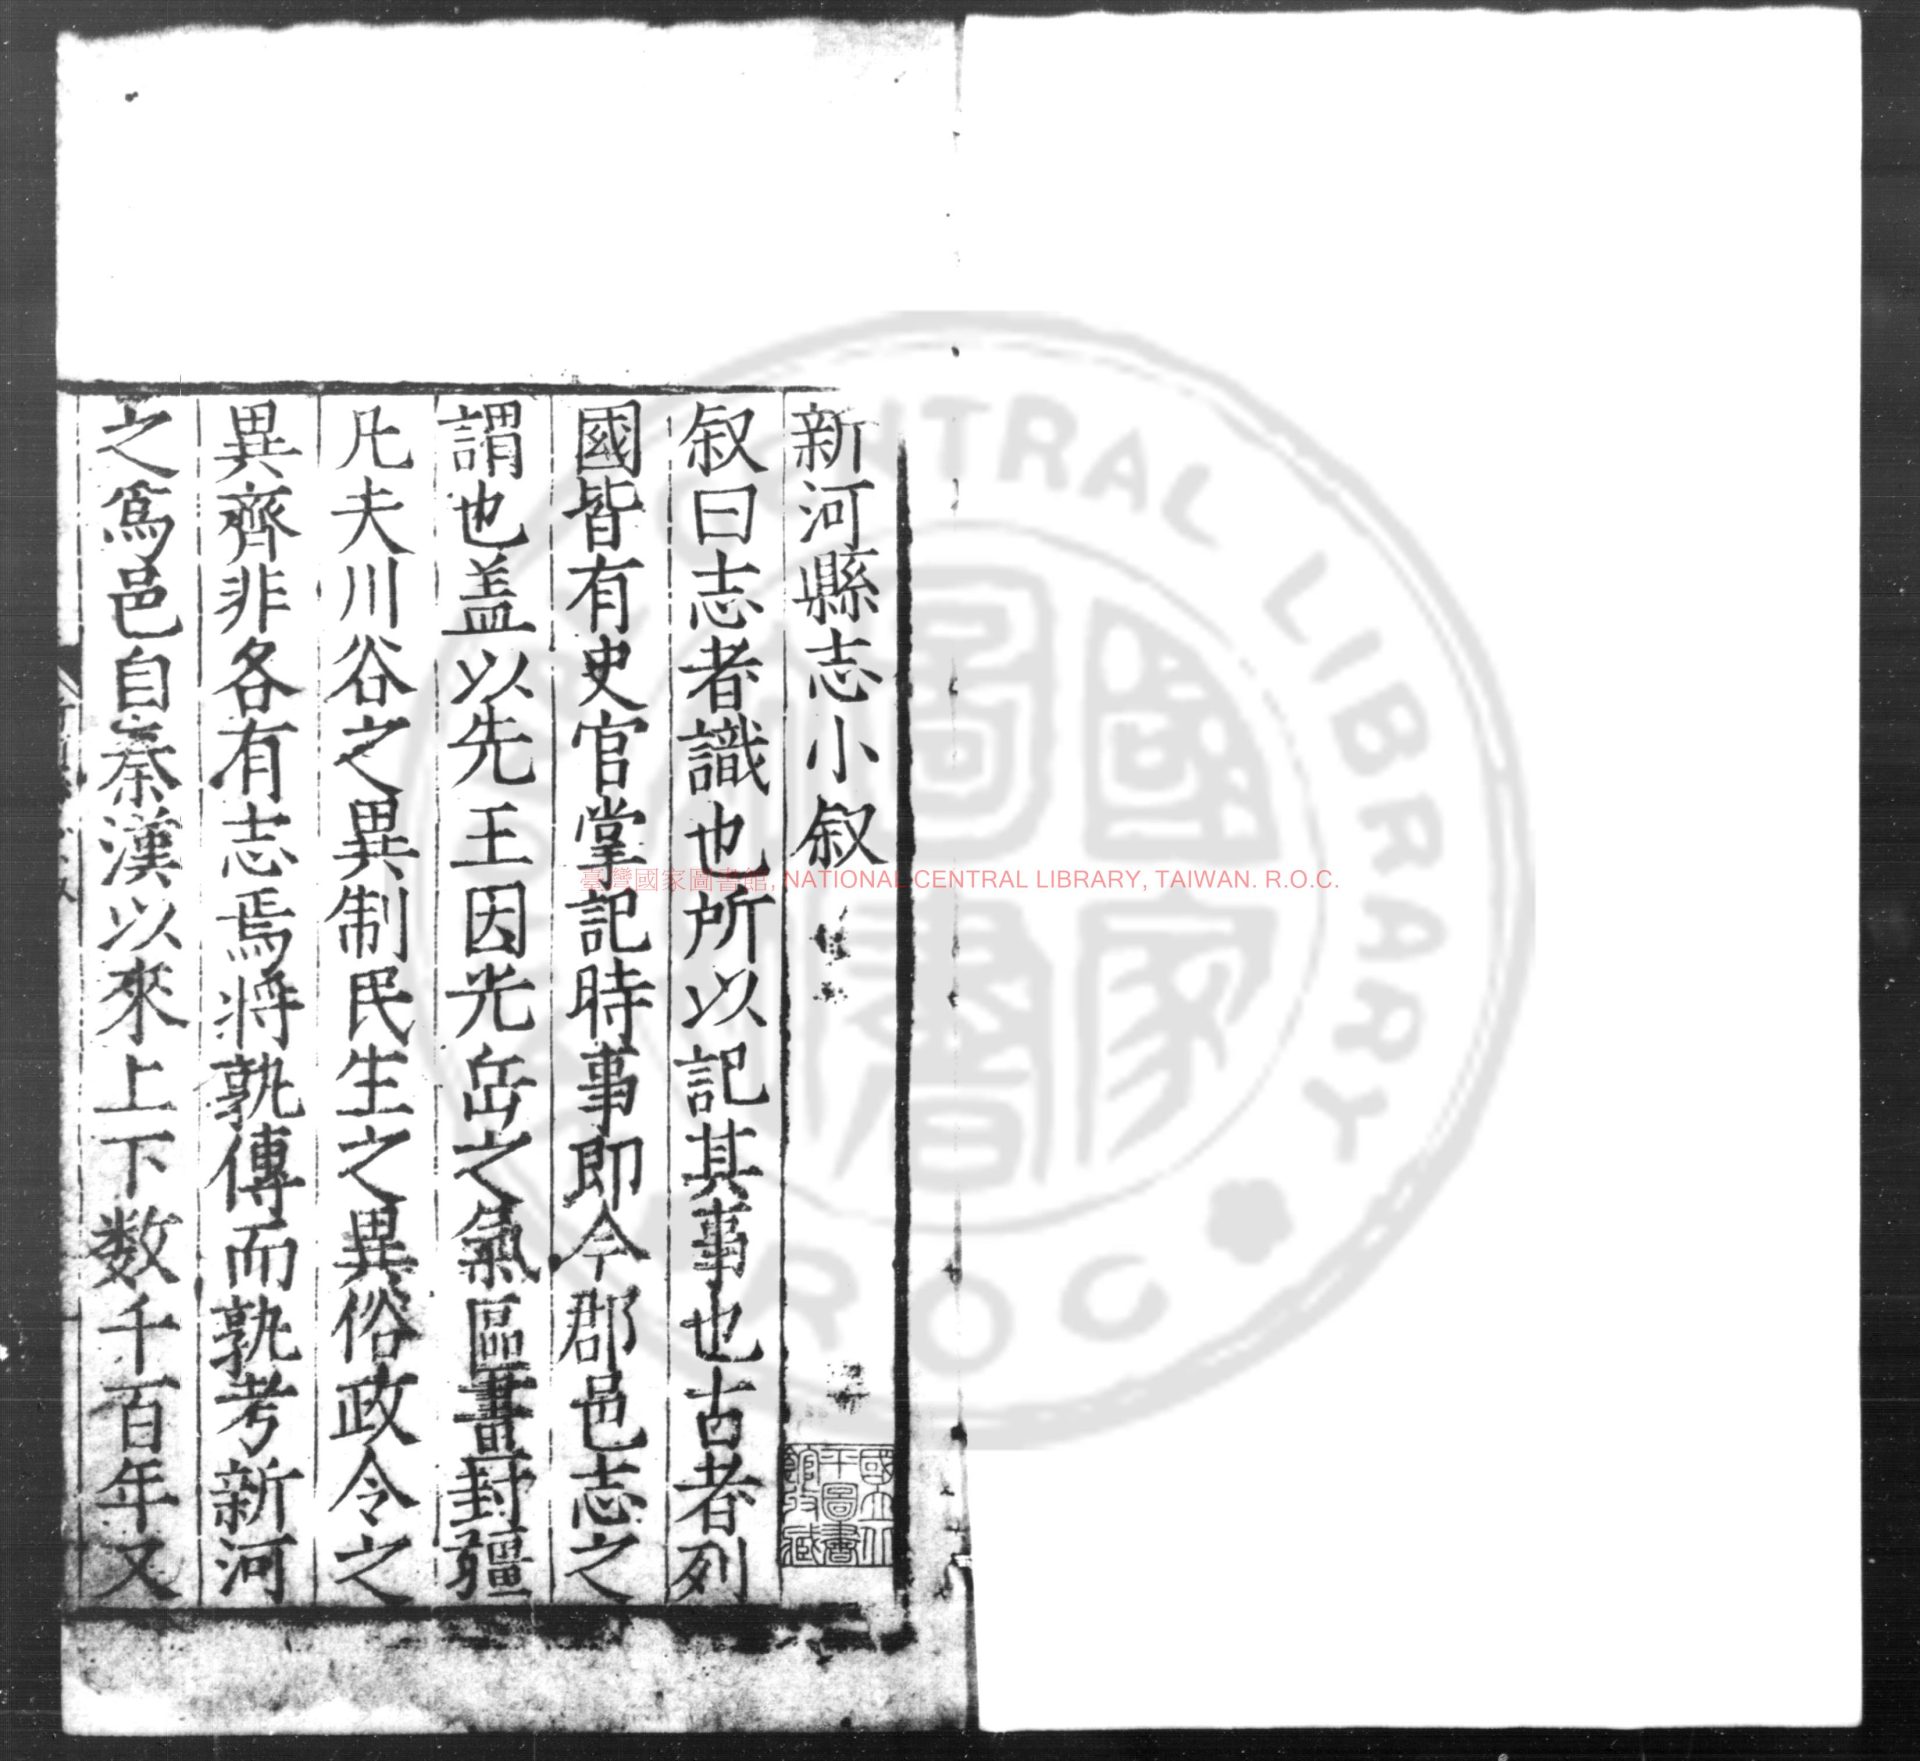 新河縣志小叙
叙曰志者識也所以記其事也古者列
國皆有史官掌記時事即今郡邑志之
謂也盖以先王因光岳之氣區畫封疆
凡夫川谷之異制民生之異俗政令之
異齊非各有志焉將孰傳而孰考新河
之爲邑自秦漢以來上下数千百年又
國立北
平圖書
館收藏
臺灣國家圖書館, NATIONAL CENTRAL LIBRARY, TAIWAN. R.O.C.
CENTRAL LIBRARY
R.O.C
國家
圖書